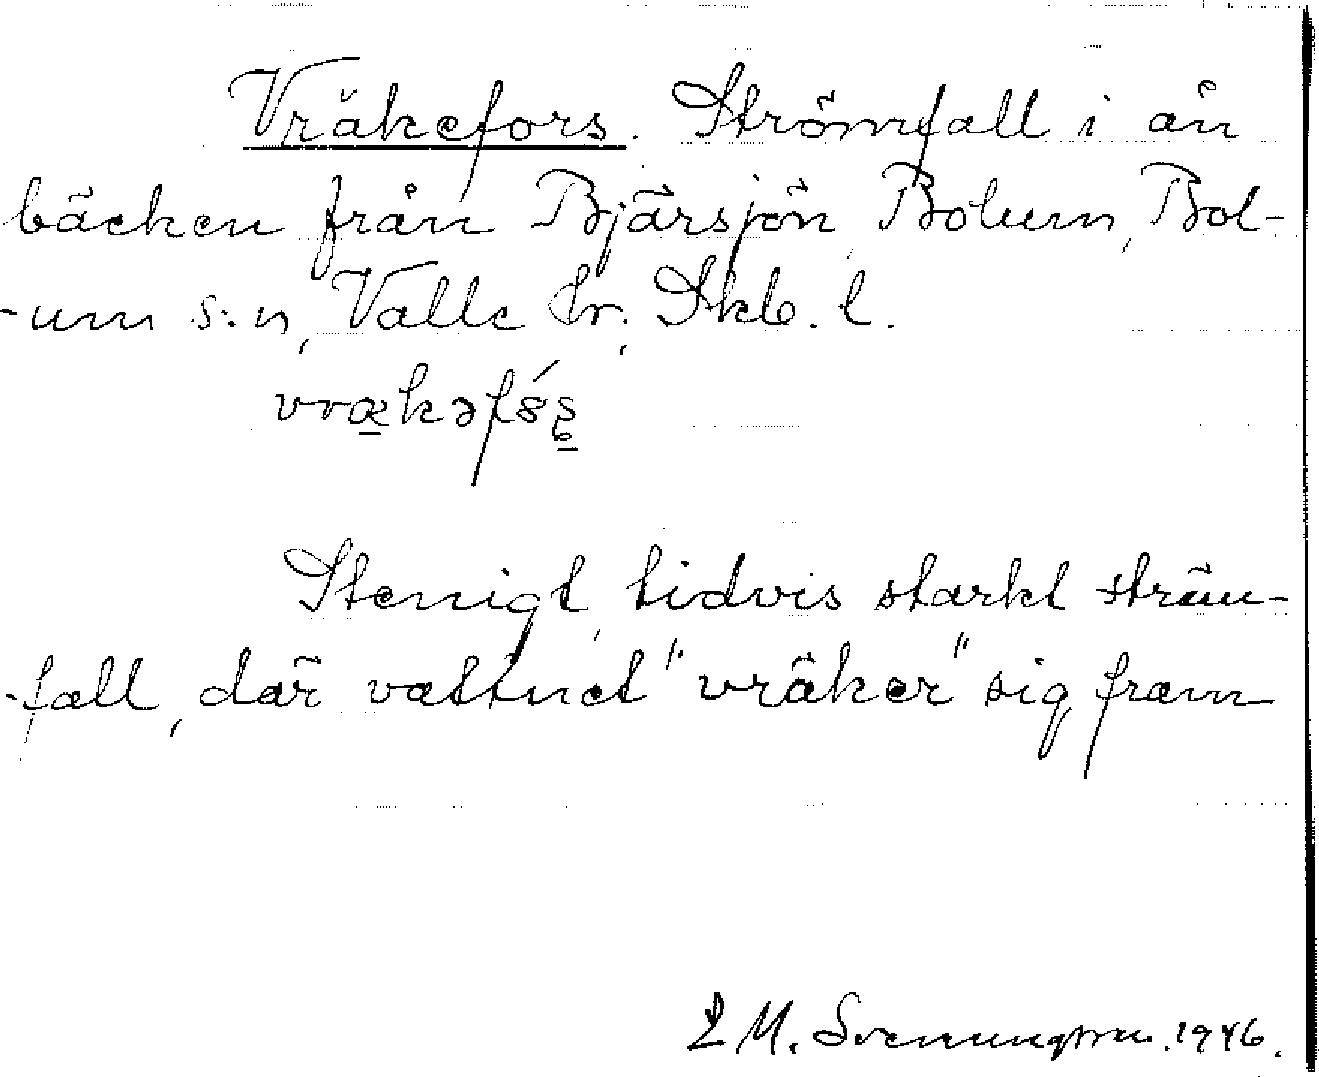 Vräkefors. Strömfall i ån
bäcken från Bjärsjön, Bolum, Bol-
-um s:n, Valle hr, Skb. l.
Stenigt, tidvis starkt ström-
-fall, där vattnet "vräker" sig fram
L M. Svenungsson. 1946.